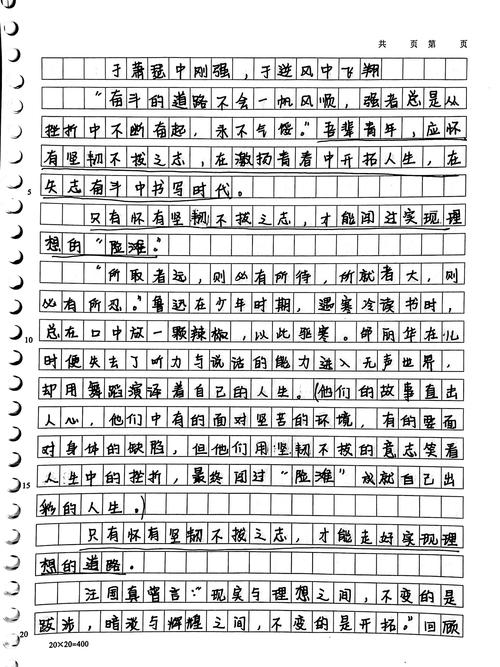 共 页 第 页
于萧瑟中刚强，于逆风中飞翔
“奋斗的道路不会一帆风顺，强者总是从
挫折中不断奋起，永不气馁。”吾辈青年，应怀
有坚韧不拔之志，在激扬青春中开拓人生，在
矢志奋斗中书写时代。
5
只有怀有坚韧不拔之志，才能闯过实现理
想的“险滩。”
“所取者远，则必有所待，所就者大，则
必有所忍。”鲁迅在少年时期，遇寒冷读书时，
总在口中放一颗辣椒，以此驱寒。邰丽华在儿
10
时便失去了听力与说话的能力进入无声世界，
却用舞蹈演译着自己的人生。（他们的故事直出
人心，他们中有的面对坚苦的环境，有的要面
对身体的缺陷，但他们用坚韧不拔的意志笑看
人生中的挫折，最终闯过“险滩”成就自己出
15
彩的人生。）
只有怀有坚韧不拔之志，才能走好实现理
想的道路。
汪国真曾言：“现实与理想之间，不变的是
跋涉，暗淡与辉煌之间，不变的是开拓。”回顾
20
20×20=400